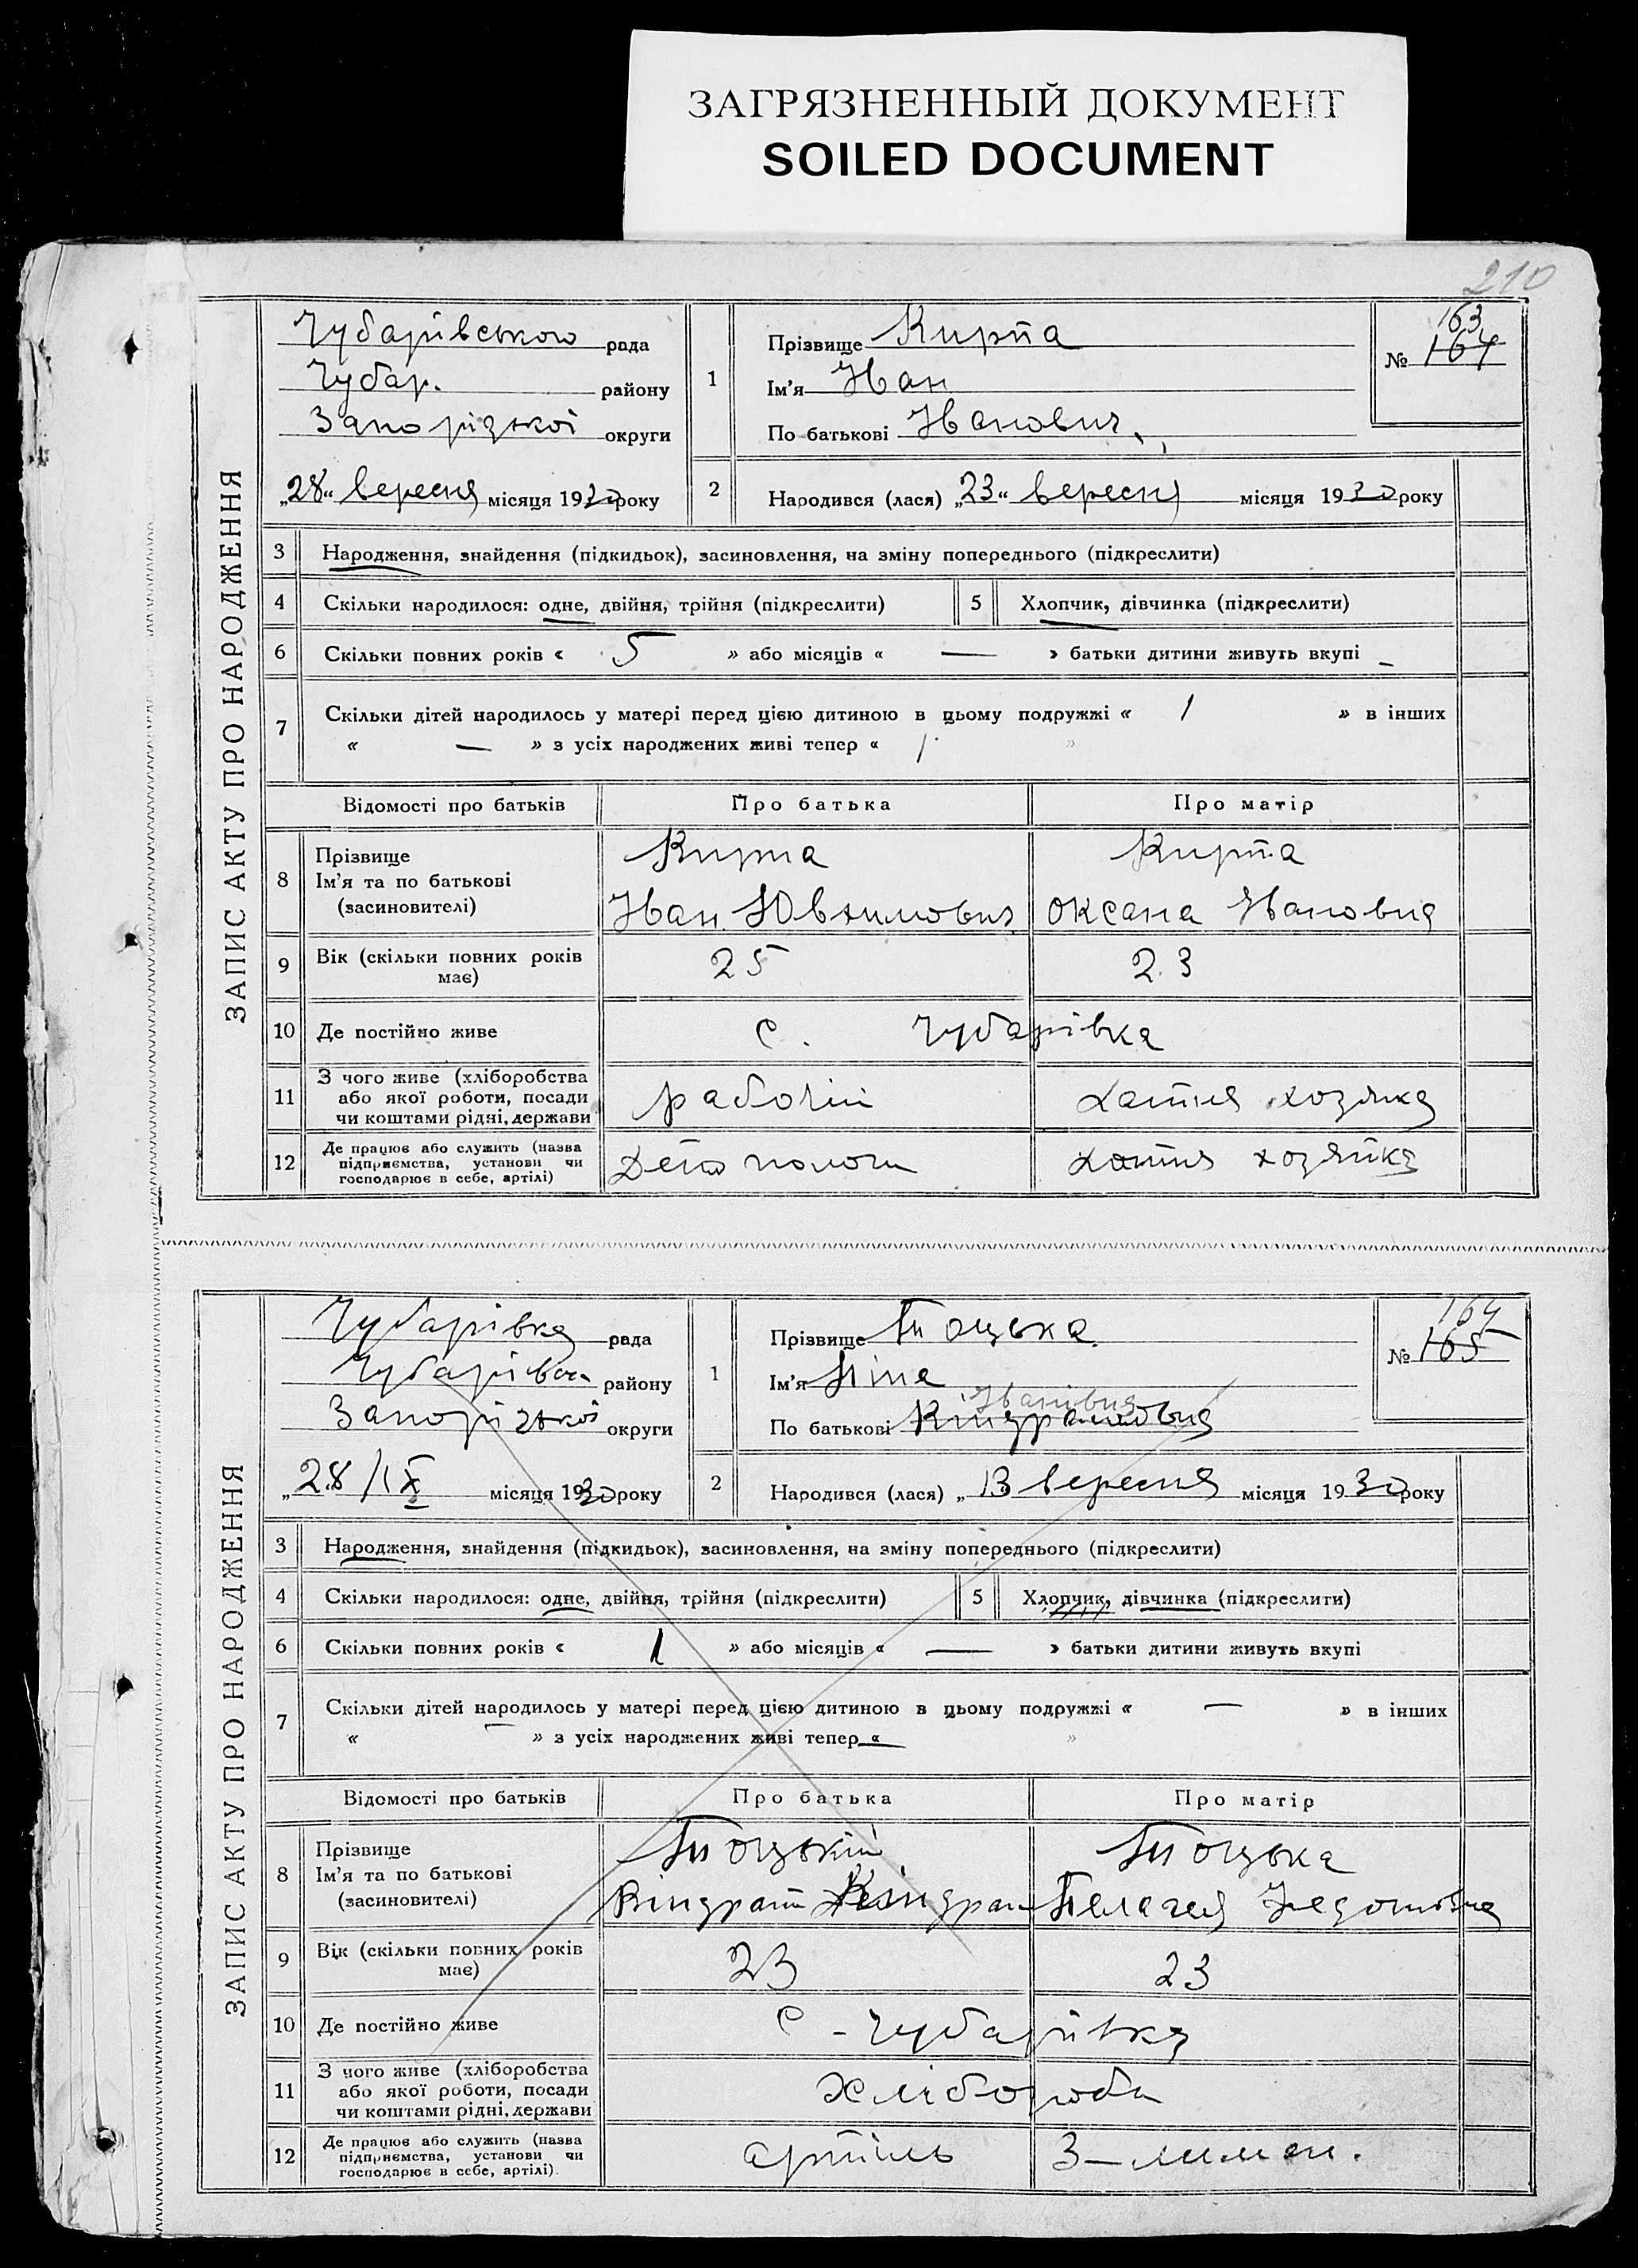 ЗАГРЯЗНЕННЫЙ ДОКУМЕНТ
SOILED DOCUMENT
210
ЗАПИС АКТУ ПРО НАРОДЖЕННЯ
Чубарівською рада
Чубар. району
Запорізької округи
„28“ вересня місяця 1930 року
1
Прізвище Кирпа
Ім'я Иван
По батькові Иванович
163
№ 164
2 Народився (лася) „23“ вересня місяця 1930 року
3 Народження, знайдення (підкидьок), засиновлення, на зміну попереднього (підкреслити)
4 Скільки народилося: одне, двійня, трійня (підкреслити) 5 Хлопчик, дівчинка (підкреслити)
6 Скільки повних років « 5 » або місяців « — » батьки дитини живуть вкупі
7 Скільки дітей народилось у матері перед цією дитиною в цьому подружжі « 1 » в інших
« — » з усіх народжених живі тепер « 1 »
Відомості про батьків Про батька Про матір
8 Прізвище Кирпа Кирпа
Ім'я та по батькові
(засиновителі) Иван Оксана Ивановна
9 Вік (скільки повних років має) 25 23
10 Де постійно живе с. Чубарівка
11 З чого живе (хліборобства
або якої роботи, посади
чи коштами рідні, держави рабочій хатня хозяйка
12 Де працює або служить (назва
підприємства, установи чи
господарює в себе, артілі) Депо пологи хатня хозяйка
ЗАПИС АКТУ ПРО НАРОДЖЕННЯ
Чубарівка рада
Чубарівськ. району
Запорізької округи
„28/IX місяця 1930 року
1
Прізвище Тоцька
Ім'я Ніна
Іванівна
По батькові Кіндратовна
164
№ 165
2 Народився (лася) „13 вересня місяця 1930 року
3 Народження, знайдення (підкидьок), засиновлення, на зміну попереднього (підкреслити)
4 Скільки народилося: одне, двійня, трійня (підкреслити) 5 Хлопчик, дівчинка (підкреслити)
6 Скільки повних років « 1 » або місяців « — » батьки дитини живуть вкупі
7 Скільки дітей народилось у матері перед цією дитиною в цьому подружжі « — » в інших
« — » з усіх народжених живі тепер « — »
Відомості про батьків Про батька Про матір
8 Прізвище Тоцькій Тоцька
Ім'я та по батькові
(засиновителі) Кіндрат Кіндрат Пелагея Федотовна
9 Вік (скільки повних років має) 23 23
10 Де постійно живе с - Чубарівка
11 З чого живе (хліборобства
або якої роботи, посади
чи коштами рідні, держави Хлібороби
12 Де працює або служить (назва
підприємства, установи чи
господарює в себе, артілі). артіль